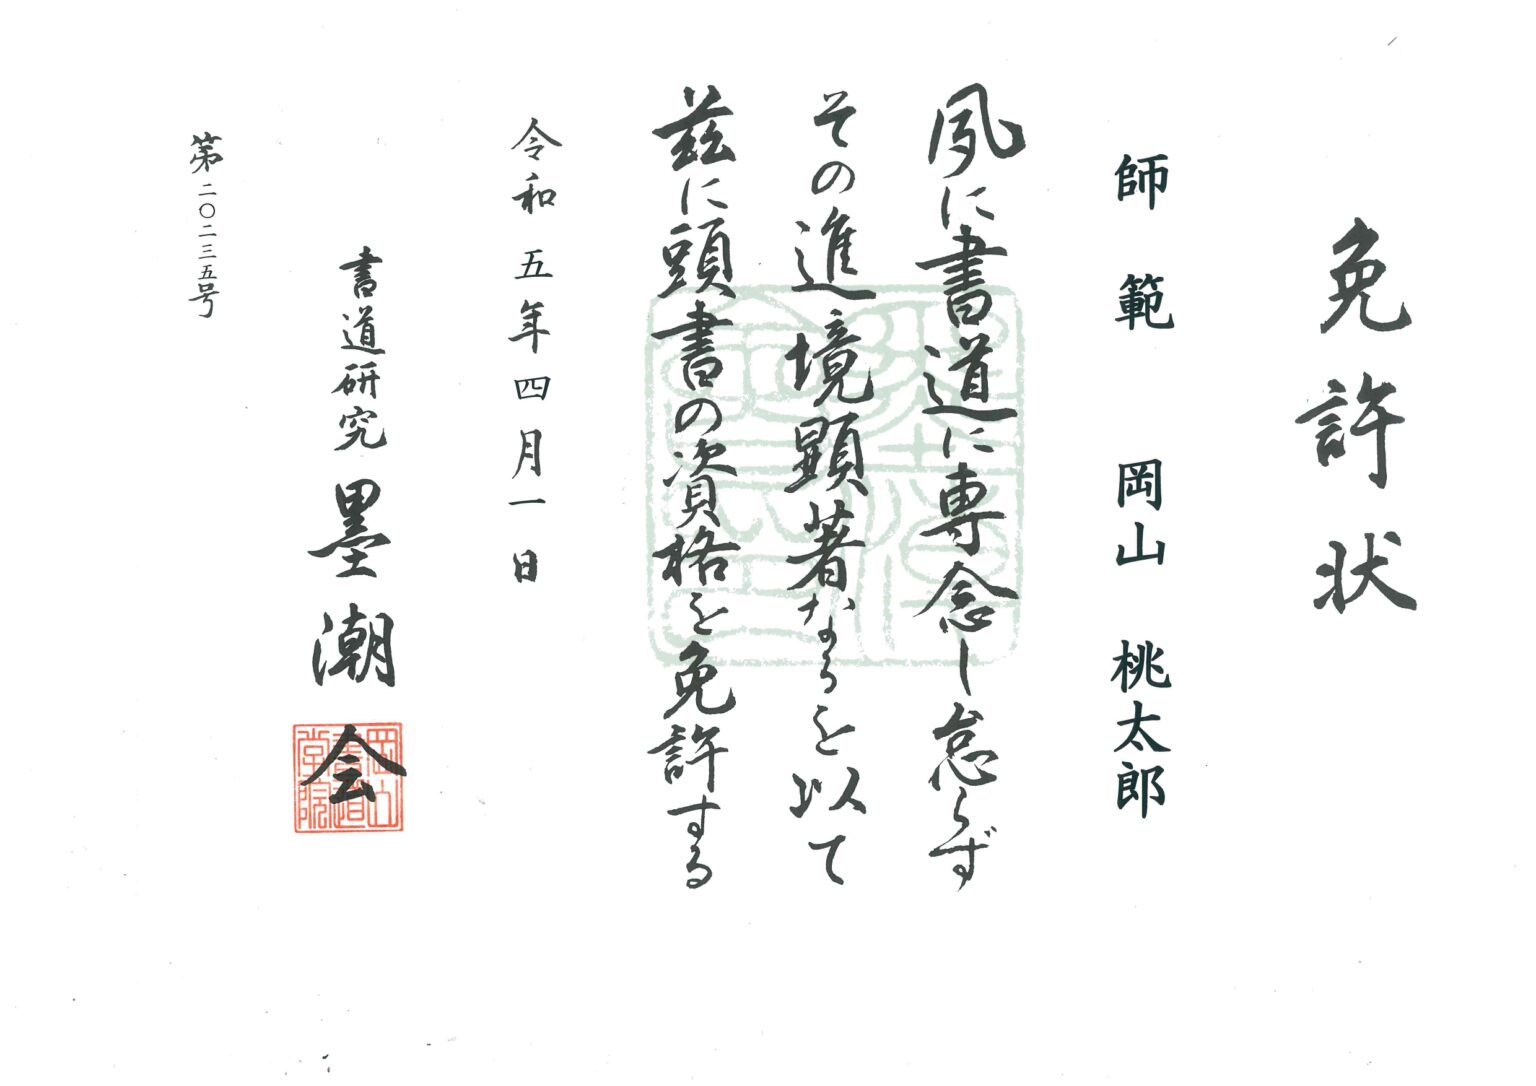 免許状
師範 岡山 桃太郎
夙に書道に専念し怠らず
その進境顕著なるを以て
茲に頭書の資格を免許する
令和五年四月一日
書道研究 墨潮会
岡山書道学院
第二〇二三五号